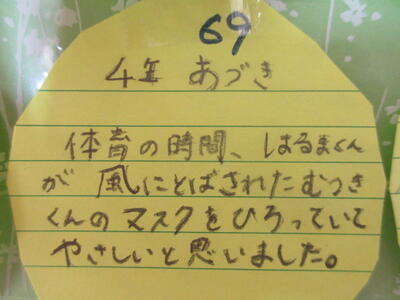 69
4年 あづき
体育の時間、はるまくん
が 風にとばされたむつき
くんのマスクをひろっていて
やさしいと思いました。